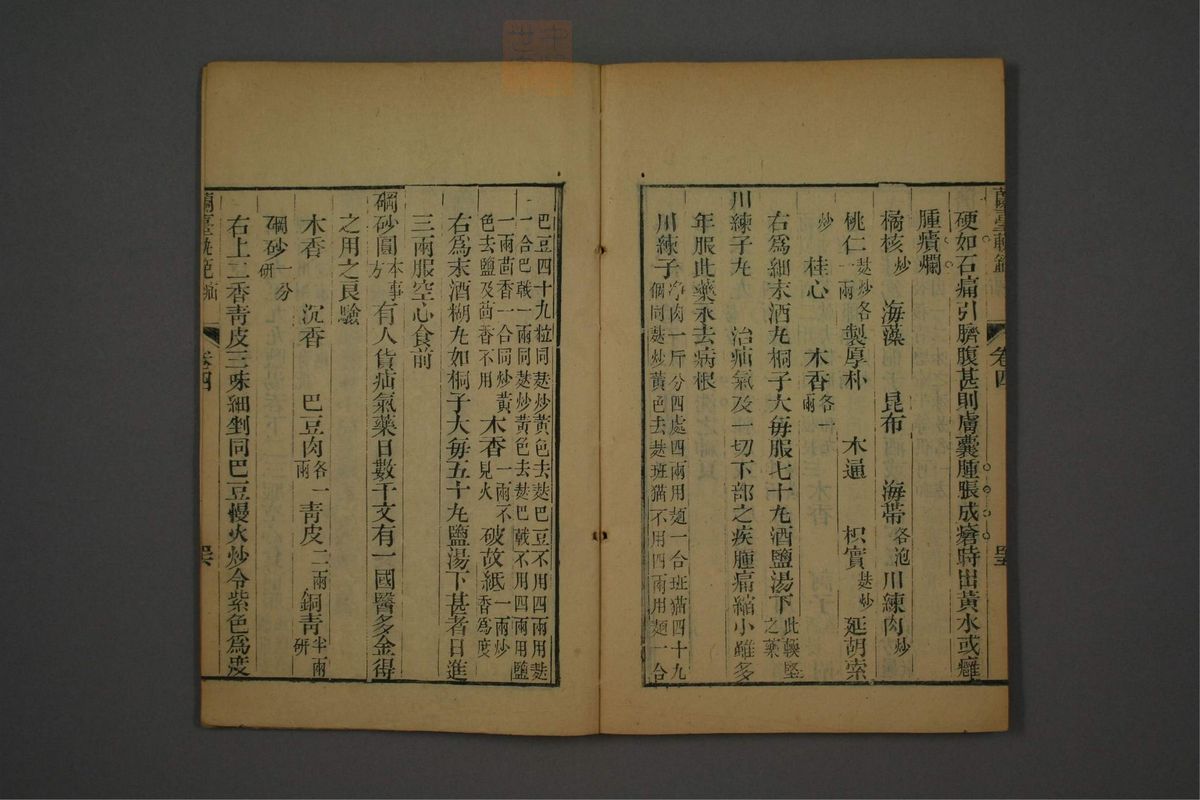 硬如石痛引臍腹甚則膚囊腫脹成瘡時出黃水或癰
腫㿉爛
橘核炒 海藻 昆布 海帶各泡 川練肉炒
桃仁麩炒各一兩 製厚朴 木通 枳實麩炒 延胡索
炒 桂心 木香各一兩
右為細末酒丸桐子大每服七十丸酒鹽湯下此輭堅之藥
川練子丸 治疝氣及一切下部之疾腫痛縮小雖多
年服此藥永去病根
川練子淨肉一斤分四處四兩用麵一合班猫四十九
個同麩炒黃色去麩班猫不用四兩用麵一合
卷四
巴豆四十九粒同麩炒黃色去麩巴豆不用四兩用麩
一合巴戟一兩同麩炒黃色去麩巴戟不用四兩用鹽
一兩茴香一合同炒黃
色去鹽及茴香不用
木香一兩不見火 破故紙一兩炒香為度
右為末酒糊丸如桐子大每五十丸鹽湯下甚者日進
三兩服空心食前
硇砂圓本事方 有人貨疝氣藥日數千文有一國醫多金得
之用之良驗
木香 沉香 巴豆肉各一兩 青皮二兩 銅青半兩研
硇砂一分研
右上二香青皮三味細剉同巴豆慢火炒令紫色為度
卷四